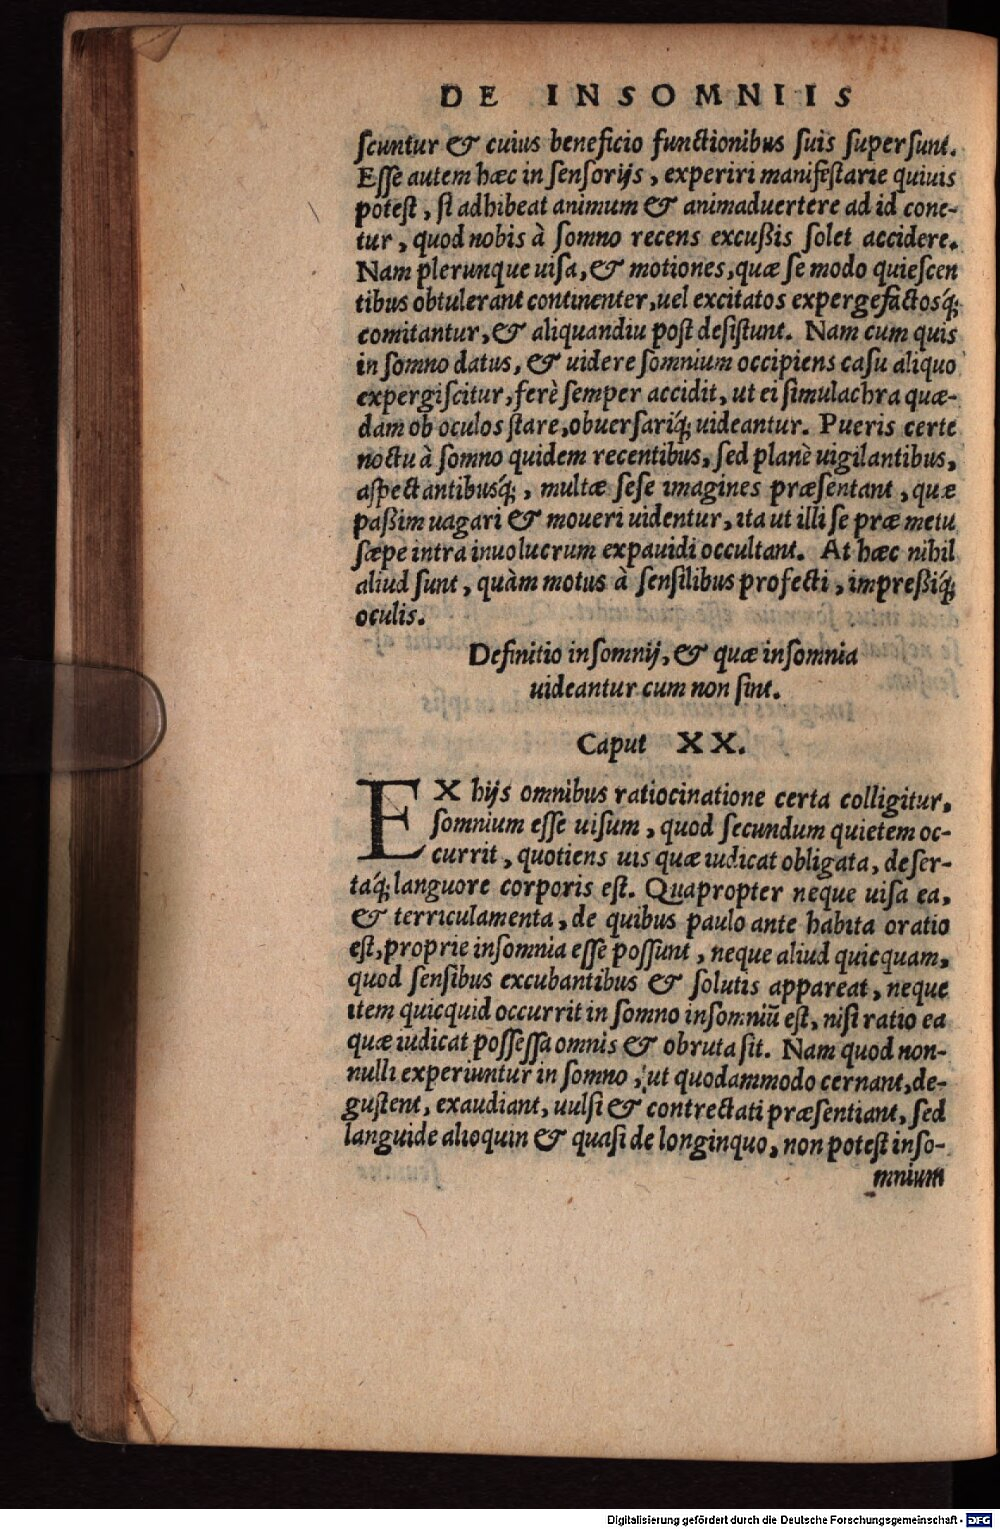 DE INSOMNIIS
ſcuntur & cuius beneficio functionibus ſuis ſuperſunt.
Eſſe autem hæc in ſenſorijs, experiri manifeſtarie quiuis
poteſt, ſi adhibeat animum & animaduertere ad id cone-
tur, quod nobis à ſomno recens excußis ſolet accidere.
Nam plerunque uiſa, & motiones, quæ ſe modo quieſcen
tibus obtulerant continenter, uel excitatos expergefactosq́;
comitantur, & aliquandiu poſt deſiſtunt. Nam cum quis
in ſomno datus, & uidere ſomnium occipiens caſu aliquo
expergiſcitur, ferè ſemper accidit, ut ei ſimulachra quæ-
dam ob oculos ſtare, obuerſariq́; uideantur. Pueris certe
noctu à ſomno quidem recentibus, ſed planè uigilantibus,
aſpectantibusq́;, multæ ſeſe imagines præſentant, quæ
paßim uagari & moueri uidentur, ita ut illi ſe præ metu
ſæpe intra inuolucrum expauidi occultant. At hæc nihil
aliud ſunt, quàm motus à ſenſilibus profecti, impreßiq́;
oculis.
Definitio inſomnij, & quæ inſomnia
uideantur cum non ſint.
Caput XX.
EX hijs omnibus ratiocinatione certa colligitur,
ſomnium eſſe uiſum, quod ſecundum quietem oc-
currit, quotiens uis quæ iudicat obligata, deſer-
taq́; languore corporis eſt. Quapropter neque uiſa ea,
& terriculamenta, de quibus paulo ante habita oratio
eſt, proprie inſomnia eſſe poſſunt, neque aliud quicquam,
quod ſenſibus excubantibus & ſolutis appareat, neque
item quicquid occurrit in ſomno inſomniũ eſt, niſi ratio ea
quæ iudicat poſſeſſa omnis & obruta ſit. Nam quod non-
nulli experiuntur in ſomno, ut quodammodo cernant, de-
guſtent, exaudiant, uulſi & contrectati præſentiant, ſed
languide alioquin & quaſi de longinquo, non poteſt inſo-
mnium
Digitalisierung gefördert durch die Deutsche Forschungsgemeinschaft - DFG